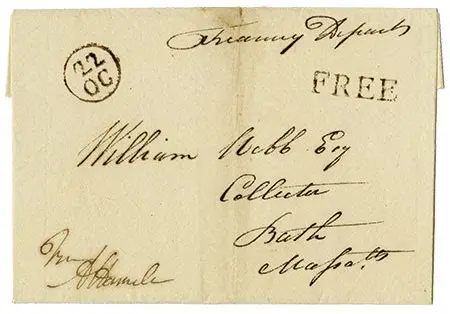 Treasury Departt
22
OC
FREE
William Webb Esq
Collector
Bath
Massatts.